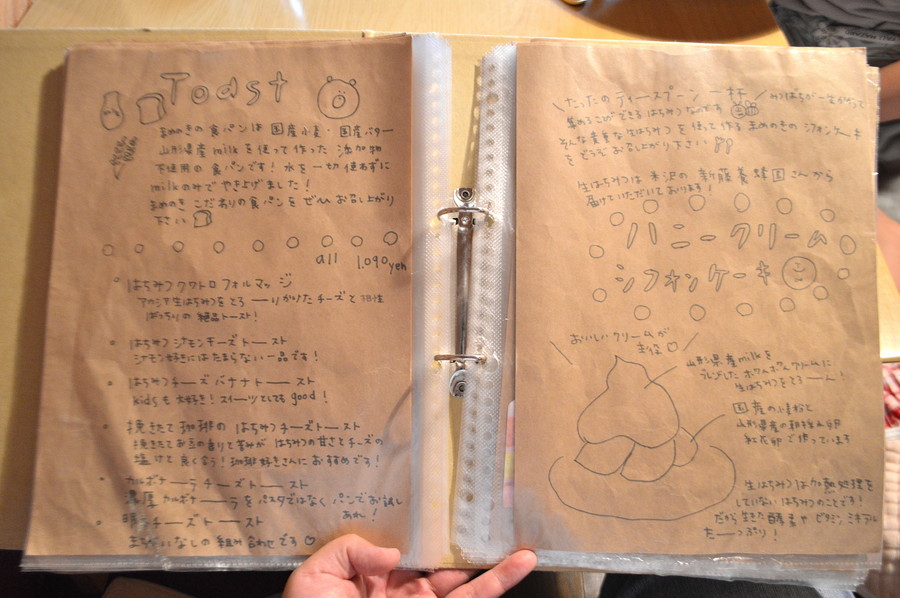 Toast
まめのきの食パンは国産小麦・国産バター
山形県産milkを使って作った添加物
不使用の食パンです！水を一切使わずに
milkのみでやき上げました！
まめのきこだわりの食パンをぜひお召し上がり
下さい
all 1,090yen
はちみつクワトロフォルマッジ
アカシア生はちみつをとろーりかけたチーズと相性
ばっちりの絶品トースト！
はちみつシナモンチーズトースト
シナモン好きにはたまらない一品です！
はちみつチーズバナナトースト
kidsも大好き！スイーツとしてもgood！
挽きたて珈琲のはちみつチーズトースト
挽きたてお豆の香りと苦みがはちみつの甘さとチーズの
塩けと良く合う！珈琲好きさんにおすすめです！
カルボナーラチーズトースト
濃厚カルボナーラをパスタではなくパンでお試し
あれ！
明太チーズトースト
まちがいなしの組み合わせです
たったのティースプーン一杯 みつばちが一生かけて
集めることができるはちみつなのです
そんな貴重な生はちみつを使って作るまめのきのシフォンケーキ
をどうぞお召し上がり下さい
生はちみつは米沢の新藤養蜂園さんから
届けていただいております！
ハニークリーム
シフォンケーキ
おいしいクリームが
主役
山形県産milkを
ブレンドしたホワホワクリームに
生はちみつをとろーん！
国産の小麦粉と
山形県産の朝採れ卵
紅花卵で作っています
生はちみつは加熱処理を
していないはちみつのことです！
だから生きた酵素やビタミンミネラル
たーっぷり！